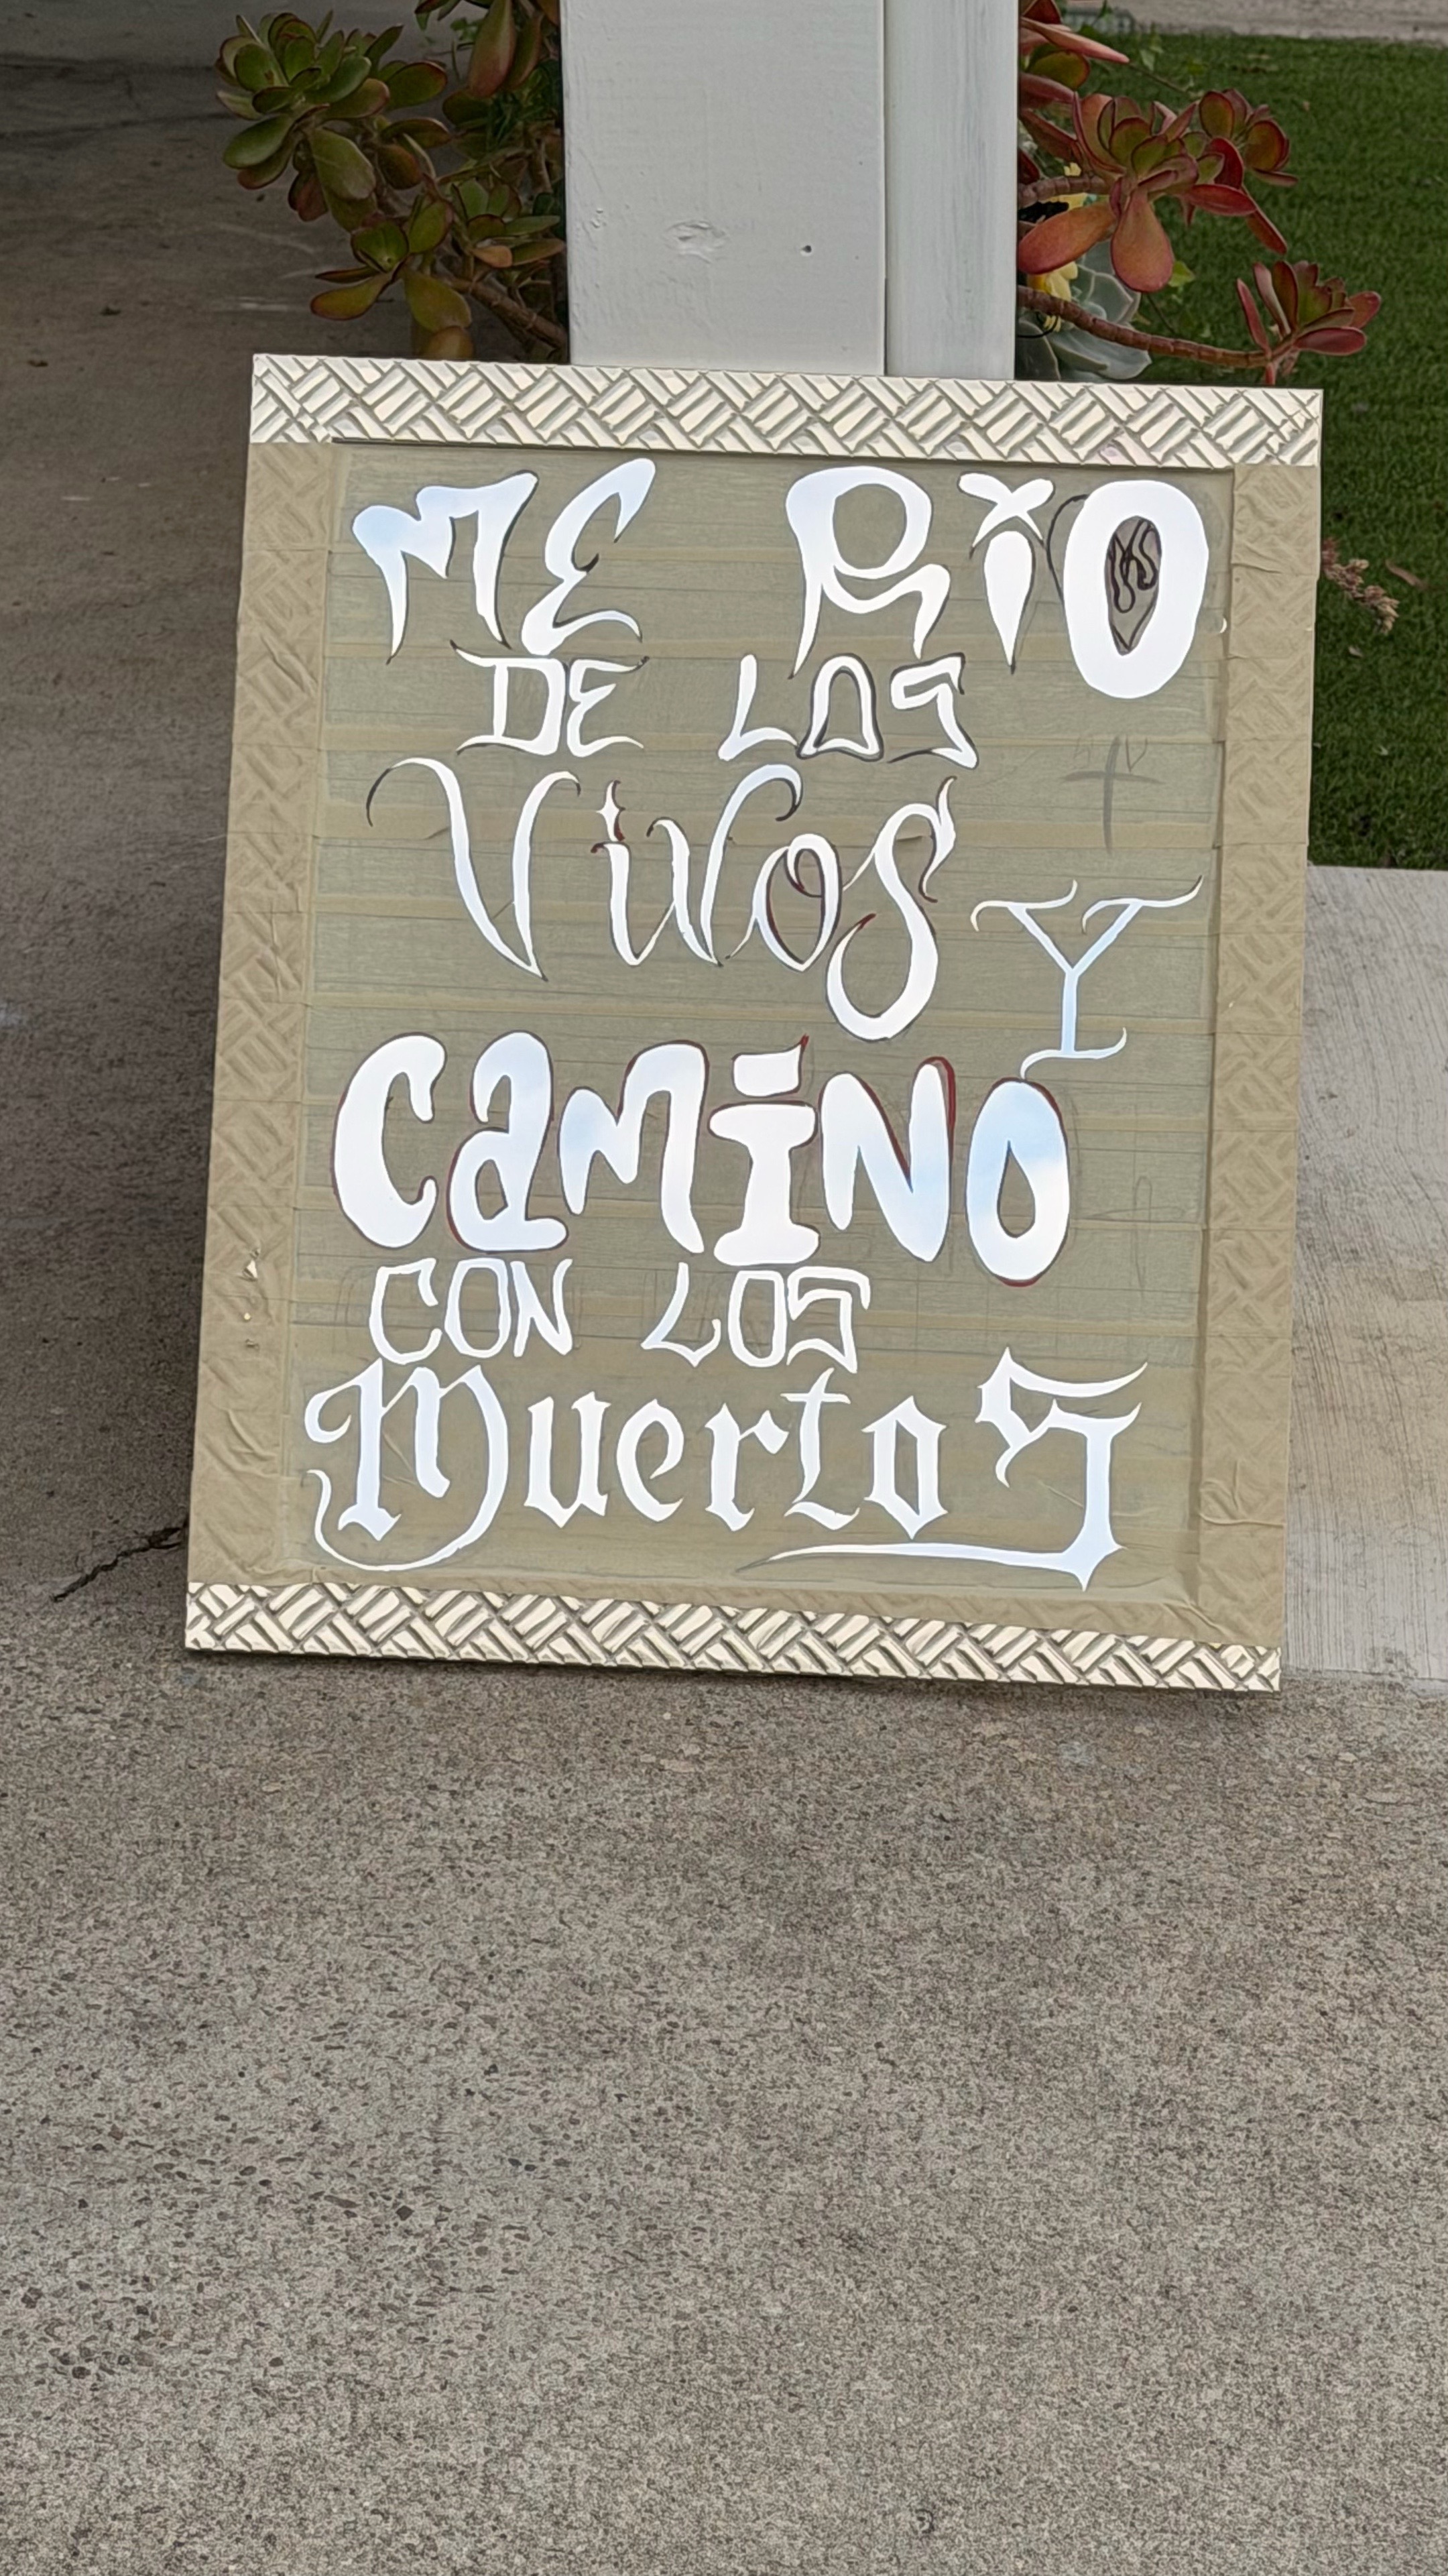 ME RiO
DE LOS
ViVOS Y
CaMiNO
CON LOS
MuertoS